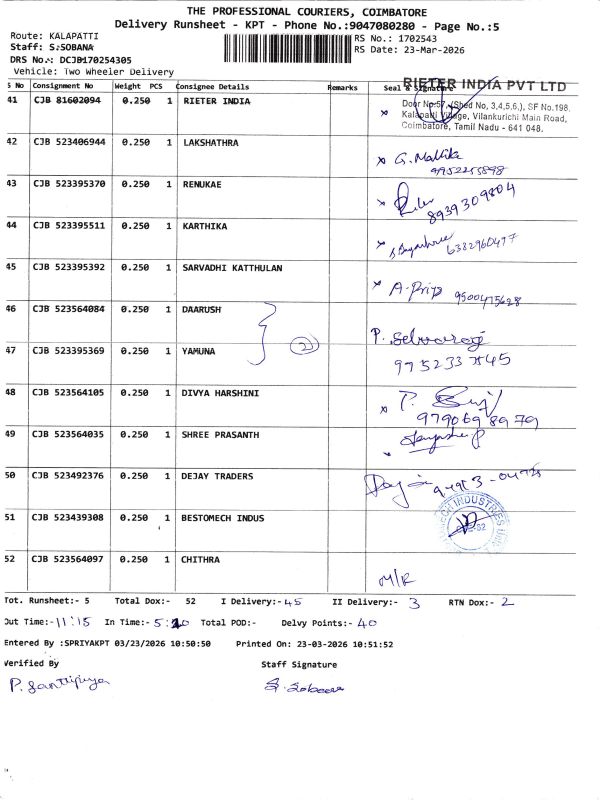 THE PROFESSIONAL COURIERS, COIMBATORE
Delivery Runsheet - KPT - Phone No.:9047080280 - Page No.:5
Route: KALAPATTI
RS No.: 1702543
Staff: S.SOBANA
RS Date: 23-Mar-2026
DRS No.: DCJB170254305
Vehicle: Two Wheeler Delivery
S No Consignment No Weight PCS Consignee Details Remarks Seal & Signature
RIETER INDIA PVT LTD
41 CJB 81602094 0.250 1 RIETER INDIA
Door No:57, (Shed No, 3,4,5,6,), SF No.198,
Kalapatti Village, Vilankurichi Main Road,
Coimbatore, Tamil Nadu - 641 048.
42 CJB 523406944 0.250 1 LAKSHATHRA
G. Mallika
43 CJB 523395370 0.250 1 RENUKAE
8939309804
44 CJB 523395511 0.250 1 KARTHIKA
6382960497
45 CJB 523395392 0.250 1 SARVADHI KATTHULAN
A. Priya 9500475628
46 CJB 523564084 0.250 1 DAARUSH
2
47 CJB 523395369 0.250 1 YAMUNA
48 CJB 523564105 0.250 1 DIVYA HARSHINI
9790698979
49 CJB 523564035 0.250 1 SHREE PRASANTH
50 CJB 523492376 0.250 1 DEJAY TRADERS
51 CJB 523439308 0.250 1 BESTOMECH INDUS
52 CJB 523564097 0.250 1 CHITHRA
M/R
Tot. Runsheet:- 5 Total Dox:- 52 I Delivery:- 45 II Delivery:- 3 RTN Dox:- 2
Out Time:- 11:15 In Time:- Total POD:- Delvy Points:- 40
Entered By :SPRIYAKPT 03/23/2026 10:50:50 Printed On: 23-03-2026 10:51:52
Verified By Staff Signature